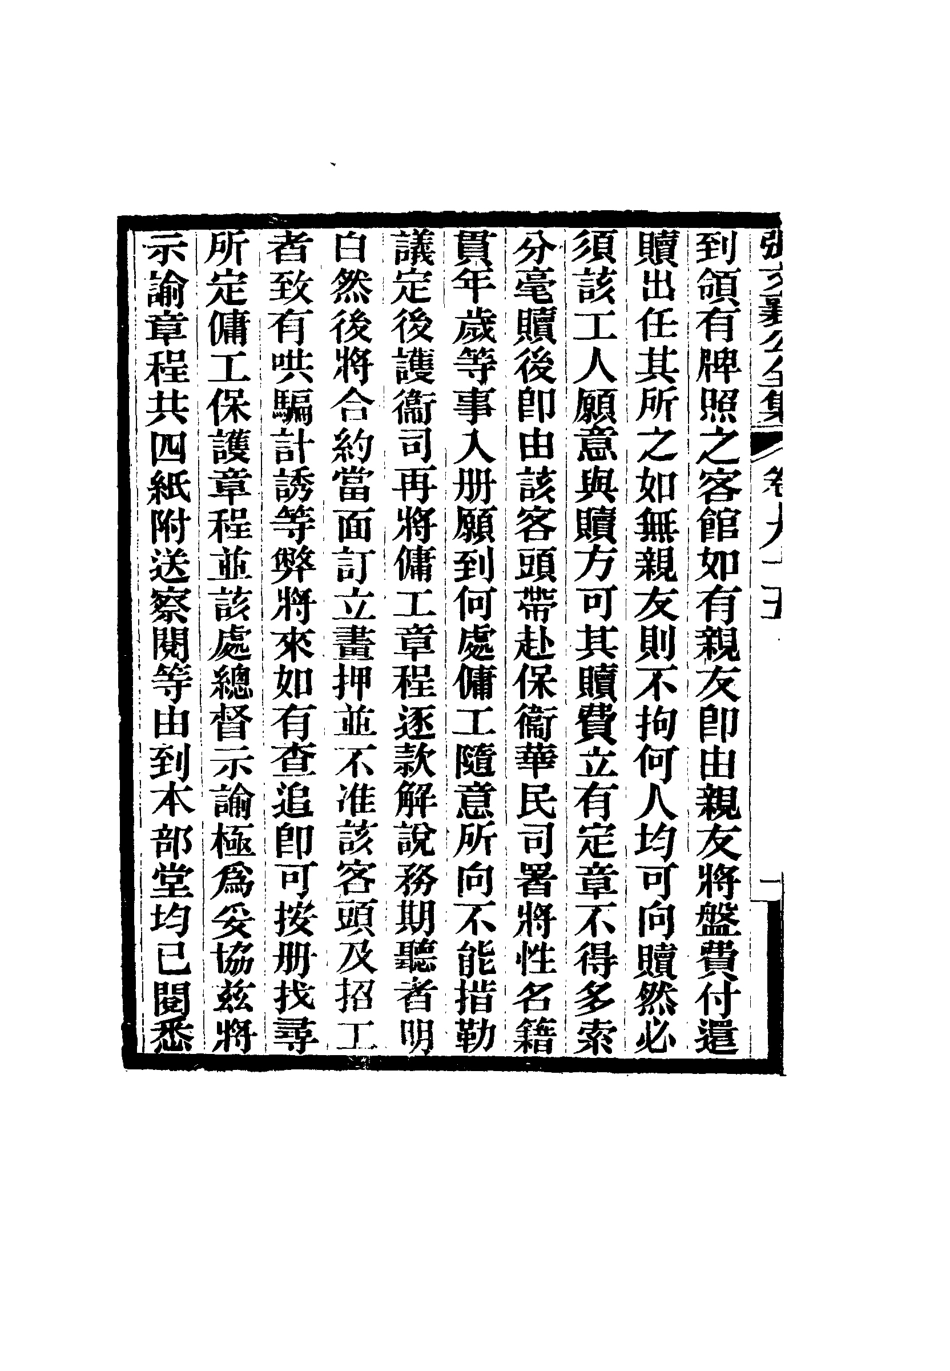 張文襄公全集 卷九十五 一
到領有牌照之客館如有親友卽由親友將盤費付還
贖出任其所之如無親友則不拘何人均可向贖然必
須該工人願意與贖方可其贖費立有定章不得多索
分毫贖後卽由該客頭帶赴保衞華民司署將姓名籍
貫年歲等事入册願到何處傭工隨意所向不能揩勒
議定後護衞司再將傭工章程逐款解說務期聽者明
白然後將合約當面訂立畫押並不准該客頭及招工
者致有哄騙計誘等弊將來如有查追卽可按册找尋
所定傭工保護章程並該處總督示諭極爲妥協茲將
示諭章程共四紙附送察閱等由到本部堂均已閱悉